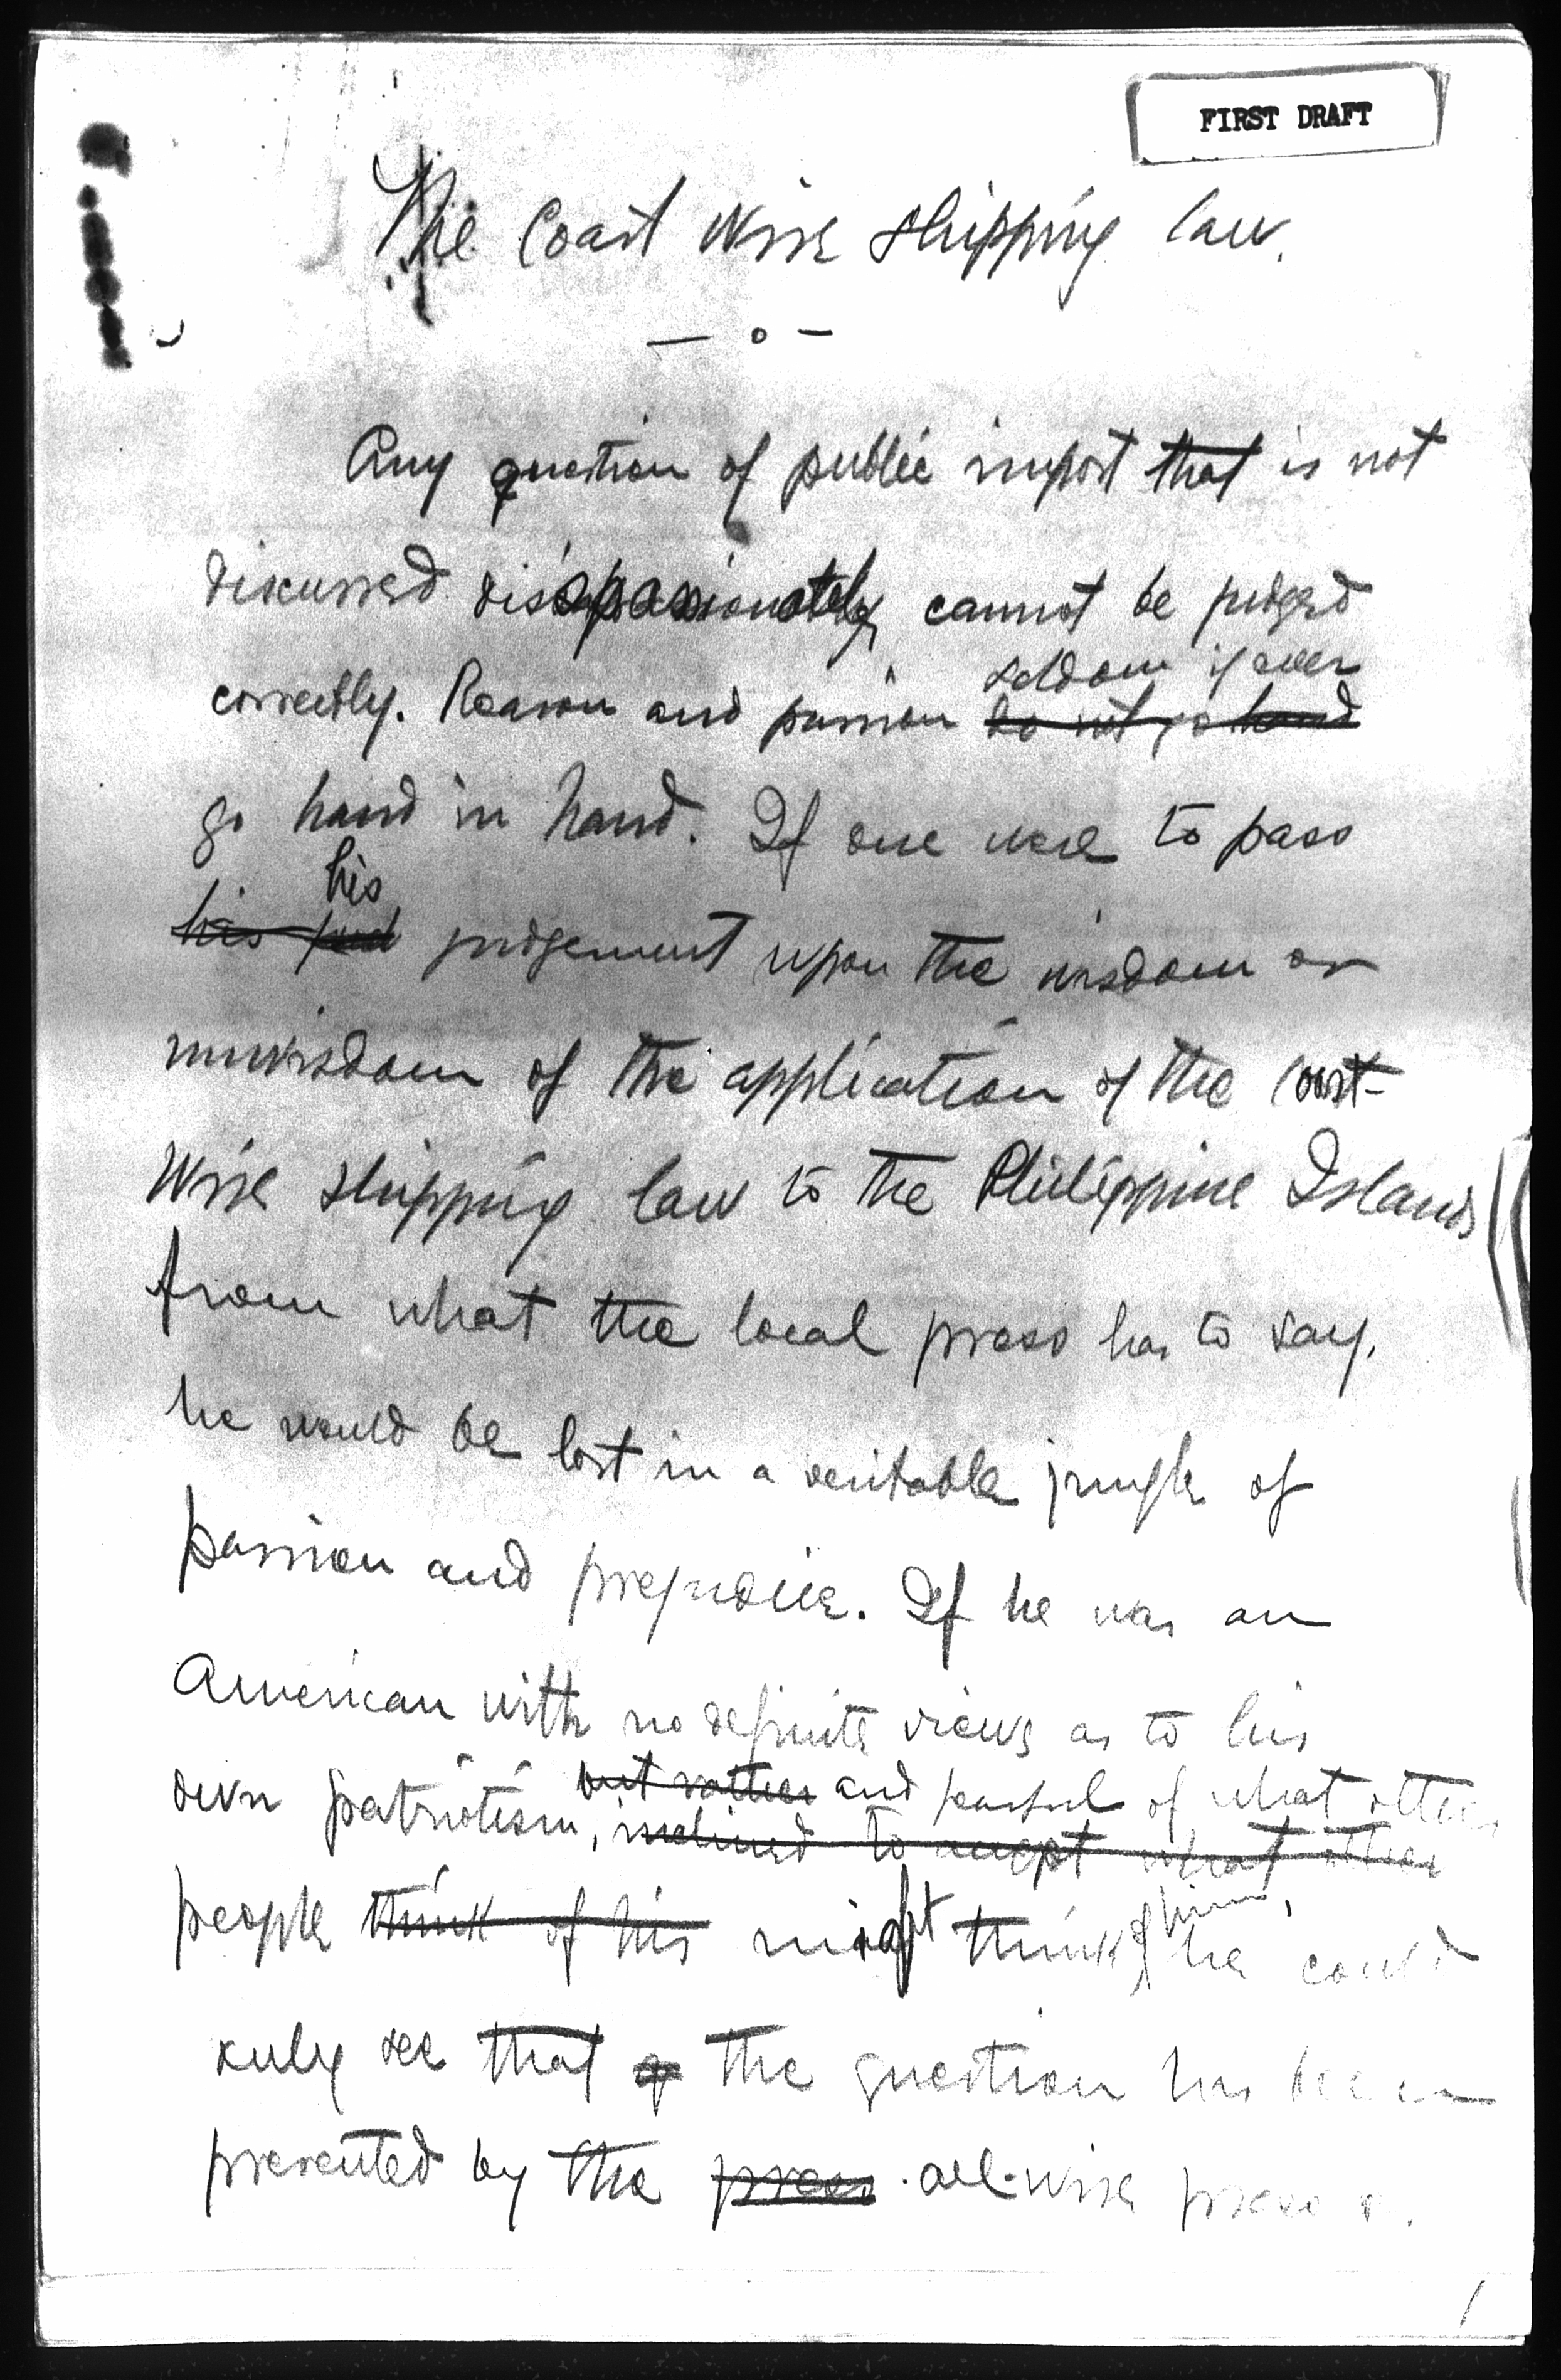 FIRST DRAFT
The Coast Wise Shipping law.
— o —
Any question of public import that is not
discussed dispassionately cannot be judged
correctly. Reason and passion seldom if ever
do not go hand
go hand in hand. If one were to pass
his
his jud judgement upon the wisdom or
unwisdom of the application of the Coast-
Wise Shipping law to the Philippine Islands
from what the local press has to say,
he would be lost in a veritable jungle of
passion and prejudice. If he was an
American with no definite views as to his
but rather and fearful of what other
own patriotism, inclined to accept what other
people think of his might think of him, he could
see that the question has been
presented by the press all-wise press
1